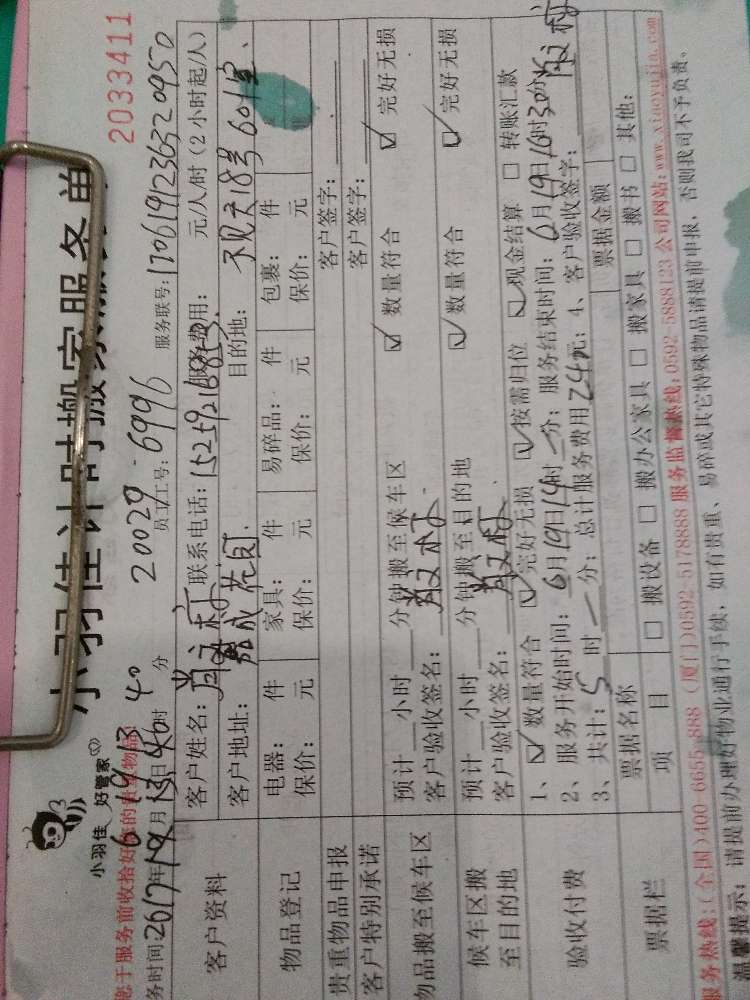 小羽佳 好管家
小羽佳计时搬家服务单
2033411
20029
员工工号：6996 服务联号：1706191236320950
务时间：2017年 月 日 时 分
客户资料
客户姓名： 联系电话： 服务费用： 元/人/时（2小时起/人）
客户地址： 目的地： 18号601室
物品登记
电器： 件 家具： 件 易碎品： 件 包裹： 件
保价： 元 保价： 元 保价： 元 保价： 元
贵重物品申报 客户签字：
客户特别承诺 客户签字：
物品搬至候车区
预计 小时 分钟搬至候车区 ☑ 数量符合 ☑ 完好无损
客户验收签名：
候车区搬至目的地
预计 小时 分钟搬至目的地 ☑ 数量符合 ☑ 完好无损
客户验收签名：
验收付费
1、☑ 数量符合 ☑ 完好无损 ☑ 按需归位 ☑ 现金结算 □ 转账汇款
2、服务开始时间：6月19日14时一分；服务结束时间：6月19日16时30分
3、共计：5时一分；总计服务费用 元；4、客户验收签字：
票据栏
票据名称 票据金额
项 目 □ 搬设备 □ 搬办公家具 □ 搬家具 □ 搬书 □ 其他：
服务热线：(全国)400-6655-888 (厦门)0592-5178888 服务监督热线：0592-5888123 公司网站：www.xiaoyujia.com
温馨提示： 请提前办理好物业通行手续，如有贵重、易碎或其它特殊物品请提前申报，否则我司不予负责。